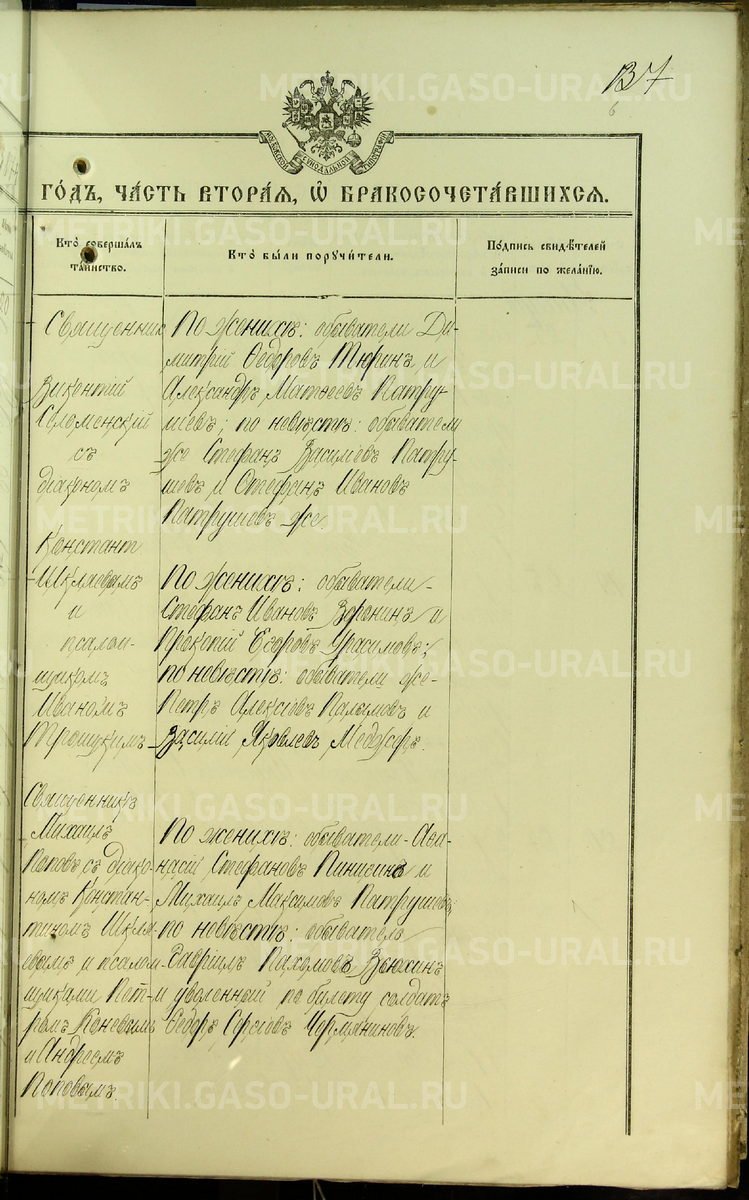 137
6
МОСКОВСКОЙ СѴНОДАЛЬНОЙ ТИПОГРАФІИ
ГО́ДЪ, ЧА́СТЬ ВТОРА́Я, Ѡ҆ БРАКОСОЧЕТА́ВШИХСЯ.
Кто̀ соверша́лъ
та́инство.
Кто̀ бы́ли поручи́тели.
По́дпись свидѣ́телей
за́писи по жела́нїю.
Священник
Викентий
Селеменский
съ
диакономъ
Констант.
Шкляевымъ
и
псалом-
щикомъ
Иваномъ
По женихѣ: обыватели Ди-
митрий Ѳедоровъ Тюринъ и
Александръ Матѳеевъ Патру-
шевъ; по невѣстѣ: обыватели
же Стефанъ Васильевъ Патру-
шевъ и Стефанъ Ивановъ
Патрушевъ же
По женихѣ: обыватели-
Стефанъ Ивановъ Воронинъ и
Прокопій Егоровъ
по невѣстѣ: обыватели же-
Петръ Алексѣевъ и
Василій Яковлевъ
Священникъ
Михаилъ
Поповъ съ диако-
номъ Констан-
тиномъ Шкля-
евымъ и псалом-
щиками Пет-
ромъ Коневымъ
и Андреемъ
Поповымъ.
По женихѣ: обыватели-Аѳа-
насій Стефановъ Пинигинъ и
Михаилъ Максимовъ Патрушевъ;
по невѣстѣ: обыватель
Гавріилъ Пахомовъ Вьюхинъ
и уволенный по билету солдатъ
Ѳедоръ Сергіевъ Чермяниновъ.
METRIKI.GASO-URAL.RU